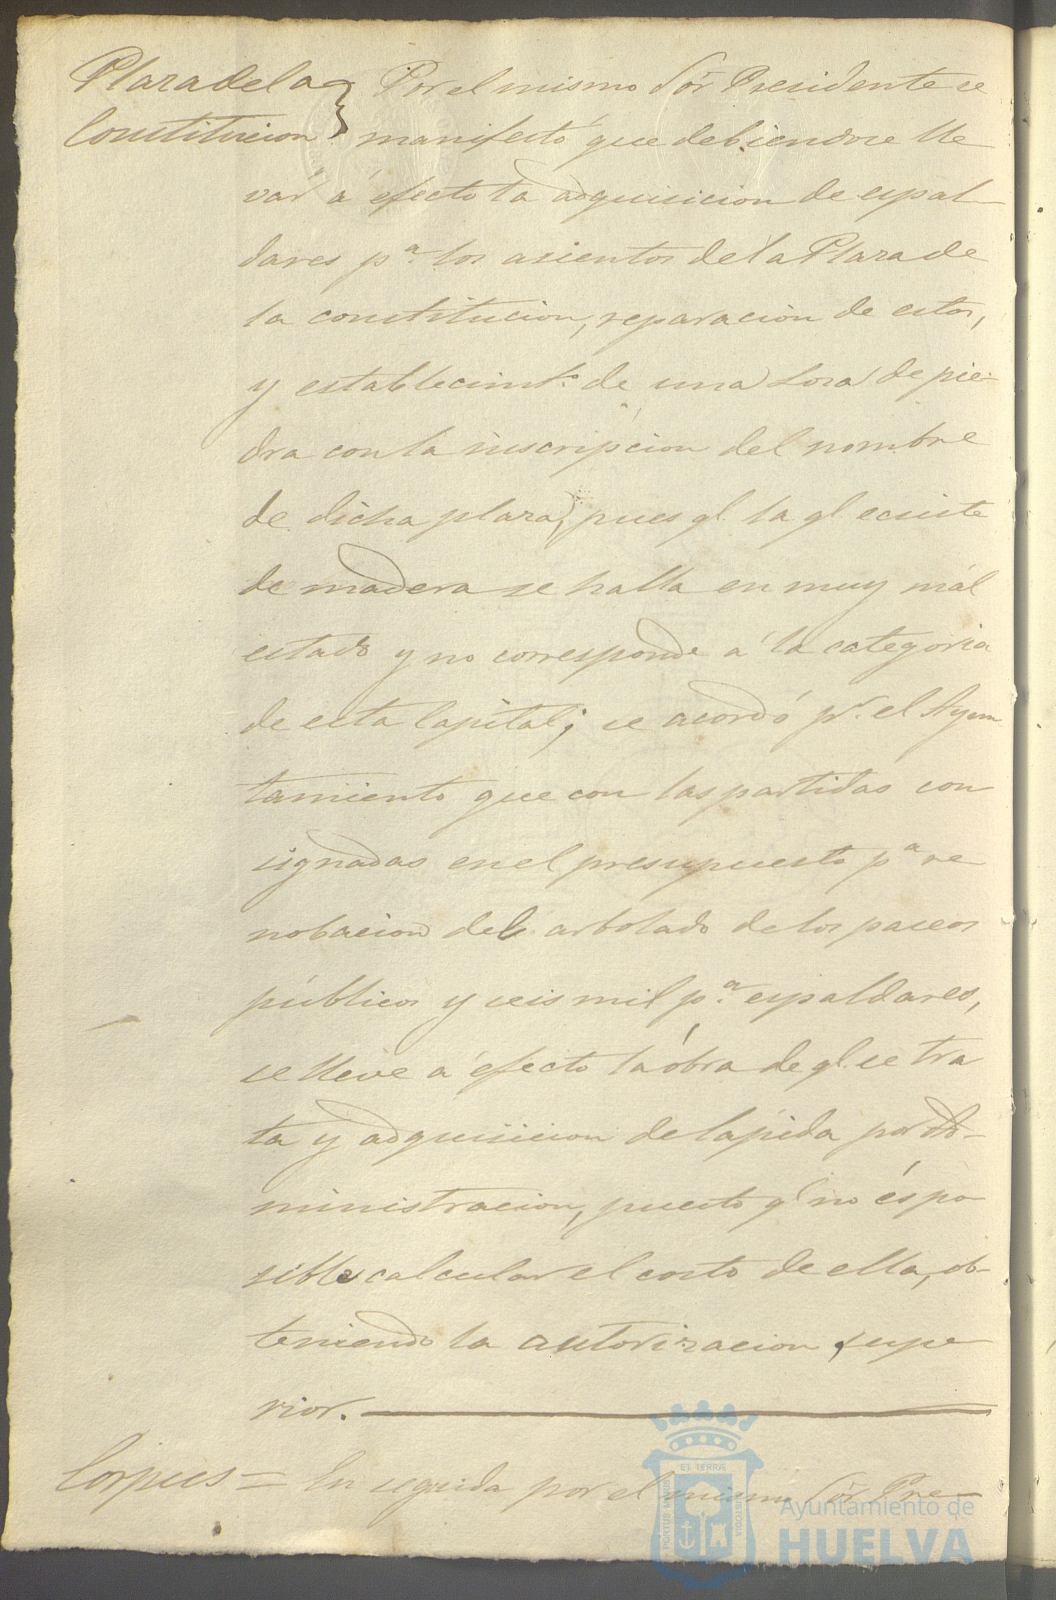 Plaza de la } Por el mismo Sor Presidente se
Constitucion } manifestó que debiendose lle
var á efecto la adquisicion de espal-
dares pa. los asientos de la Plaza de
la constitucion, reparacion de estos,
y establecimto. de una losa de pie-
dra con la inscripcion del nombre
de dicha plaza, pues q. la q. ecsiste
de madera se halla en muy mál
estado y no corresponde á la categoria
de esta Capital; se acordó pr. el Ayun
tamiento que con las partidas con
signadas en el presupuesto pa re
nobacion del arbolado de los paseos
públicos y seis mil pa. espaldares,
se lleve a efecto la óbra de q. se tra
ta y adquisicion de lapida por ad-
ministracion, puesto q. no és po
sible calcular el costo de ella, ob-
teniendo la autorizacion supe
rior.
Corpus = En seguida por el mismo Sor. Pre-
ET TERRÆ
PORTUS MARIS
CUSTODIA
Ayuntamiento de
HUELVA